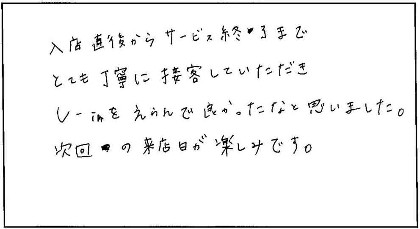 入店直後からサービス終了まで
とても丁寧に接客していただき
しーnをえらんで良かったなと思いました。
次回の来店日が楽しみです。